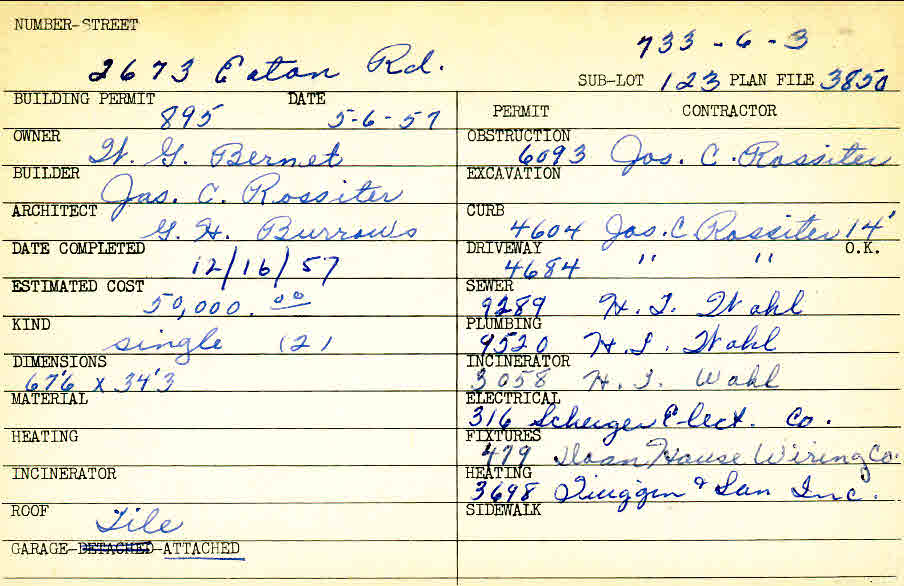 NUMBER-STREET
733-6-3
2673 Eaton Rd.
SUB-LOT 123 PLAN FILE 3850
BUILDING PERMIT DATE
895 5-6-57
OWNER
W. G. Bernet
BUILDER
Jas. C. Rossiter
ARCHITECT
G. H. Burrows
DATE COMPLETED
12/16/57
ESTIMATED COST
50,000.00
KIND
single (2)
DIMENSIONS
67'6 x 34'3
MATERIAL
HEATING
INCINERATOR
ROOF
Tile
GARAGE-DETACHED-ATTACHED
PERMIT CONTRACTOR
OBSTRUCTION
6093 Jos. C. Rossiter
EXCAVATION
CURB
4604 Jos. C Rossiter 14'
DRIVEWAY O.K.
4684 " "
SEWER
9289 H. I. Wahl
PLUMBING
9520 H. I. Wahl
INCINERATOR
3058 H. I. Wahl
ELECTRICAL
316 Elect. Co.
FIXTURES
479 Sloan House Wiring Co.
HEATING
3698 & Son Inc.
SIDEWALK